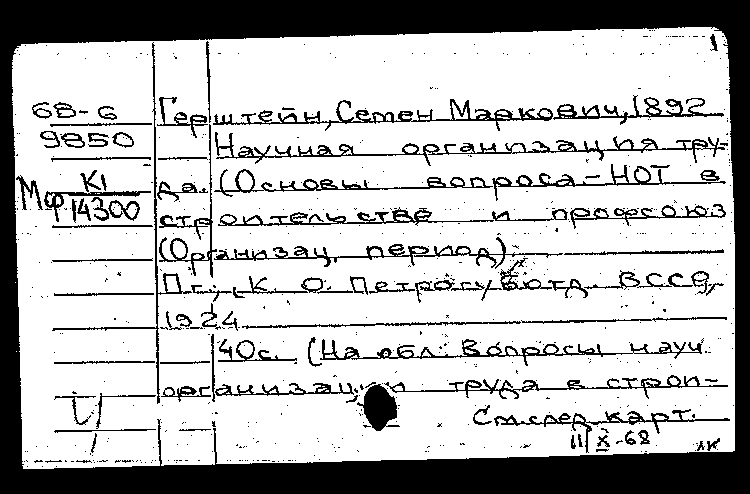 1
68-6
9850
Мф К1
14300
Герштейн, Семен Маркович, 1892
Научная организация тру-
да. (Основы вопроса - НОТ в
строительстве и профсоюз
(Организац. период).
Пг., К. О. Петрогуботд. ВССР,
1924
40с. (На обл: Вопросы науч.
организации труда в строи-
См.след.карт.
11/X-68